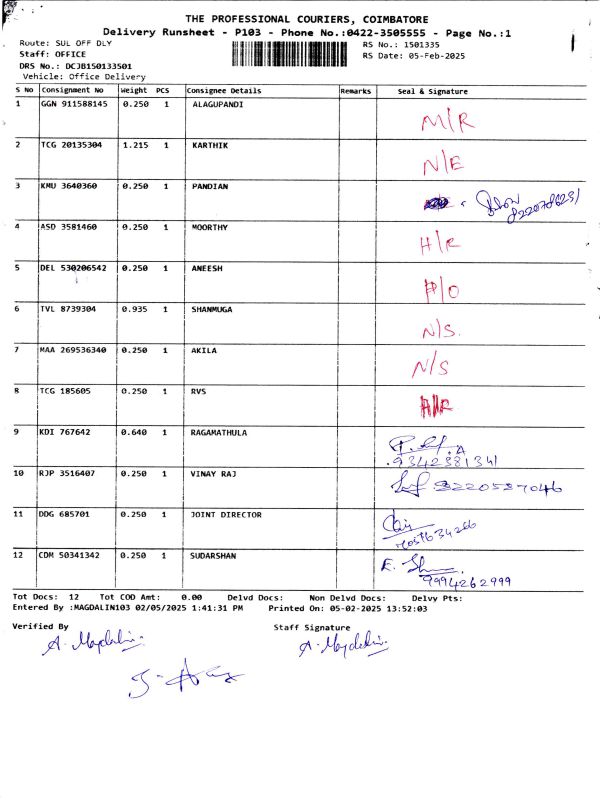 THE PROFESSIONAL COURIERS, COIMBATORE
Delivery Runsheet - P103 - Phone No.:0422-3505555 - Page No.:1
Route: SUL OFF DLY
RS No.: 1501335
Staff: OFFICE
RS Date: 05-Feb-2025
DRS No.: DCJB150133501
Vehicle: Office Delivery
S No Consignment No Weight PCS Consignee Details Remarks Seal & Signature
1 GGN 911588145 0.250 1 ALAGUPANDI M/R
2 TCG 20135304 1.215 1 KARTHIK N/E
3 KMU 3640360 0.250 1 PANDIAN
4 ASD 3581460 0.250 1 MOORTHY H/R
5 DEL 530206542 0.250 1 ANEESH P/O
6 TVL 8739304 0.935 1 SHANMUGA N/S.
7 MAA 269536340 0.250 1 AKILA N/S
8 TCG 185605 0.250 1 RVS
9 KDI 767642 0.640 1 RAGAMATHULA
9342381341
10 RJP 3516407 0.250 1 VINAY RAJ
11 DDG 685701 0.250 1 JOINT DIRECTOR
12 CDM 50341342 0.250 1 SUDARSHAN
9994262999
Tot Docs: 12 Tot COD Amt: 0.00 Delvd Docs: Non Delvd Docs: Delvy Pts:
Entered By :MAGDALIN103 02/05/2025 1:41:31 PM Printed On: 05-02-2025 13:52:03
Verified By Staff Signature
A. Magdalin. A. Magdalin